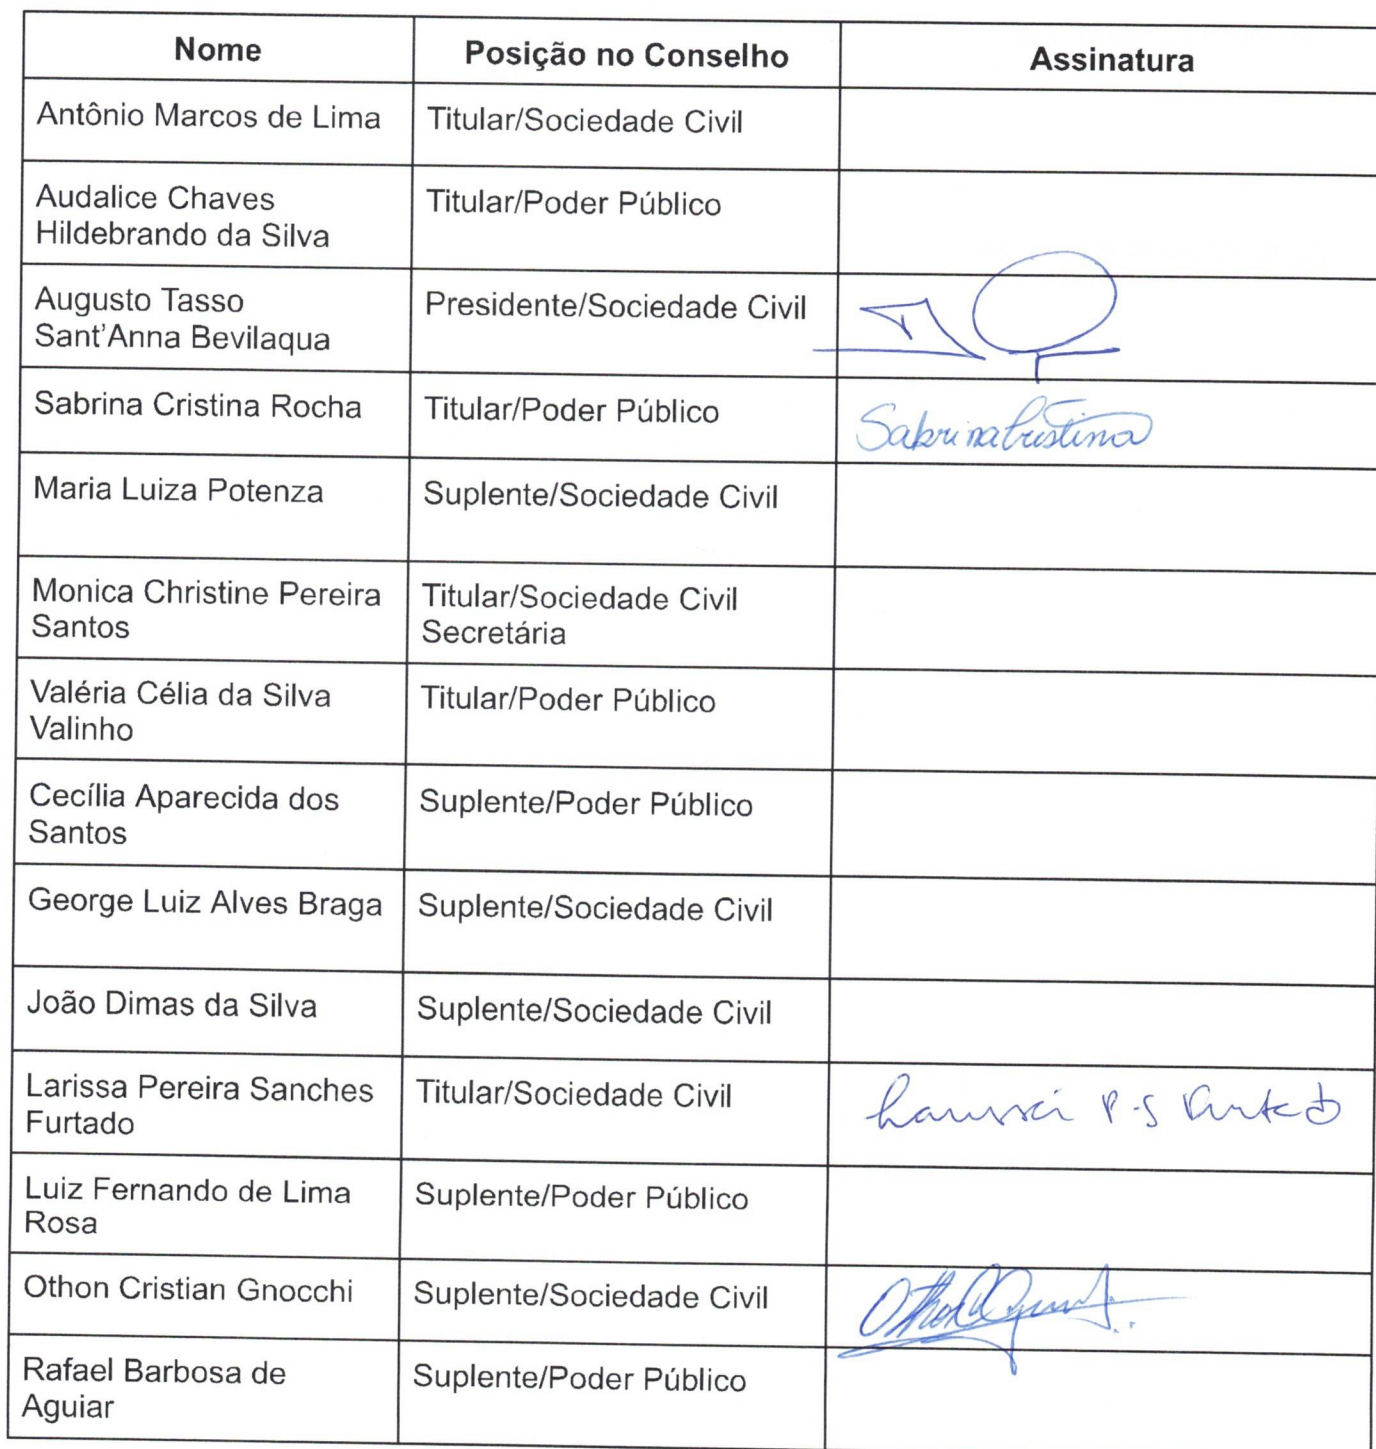 Nome
Posição no Conselho
Assinatura
Antônio Marcos de Lima
Titular/Sociedade Civil
Audalice Chaves
Hildebrando da Silva
Titular/Poder Público
Augusto Tasso
Sant'Anna Bevilaqua
Presidente/Sociedade Civil
Sabrina Cristina Rocha
Titular/Poder Público
Sabrina Cristina
Maria Luiza Potenza
Suplente/Sociedade Civil
Monica Christine Pereira
Santos
Titular/Sociedade Civil
Secretária
Valéria Célia da Silva
Valinho
Titular/Poder Público
Cecília Aparecida dos
Santos
Suplente/Poder Público
George Luiz Alves Braga
Suplente/Sociedade Civil
João Dimas da Silva
Suplente/Sociedade Civil
Larissa Pereira Sanches
Furtado
Titular/Sociedade Civil
Larissa P.S Furtado
Luiz Fernando de Lima
Rosa
Suplente/Poder Público
Othon Cristian Gnocchi
Suplente/Sociedade Civil
Rafael Barbosa de
Aguiar
Suplente/Poder Público